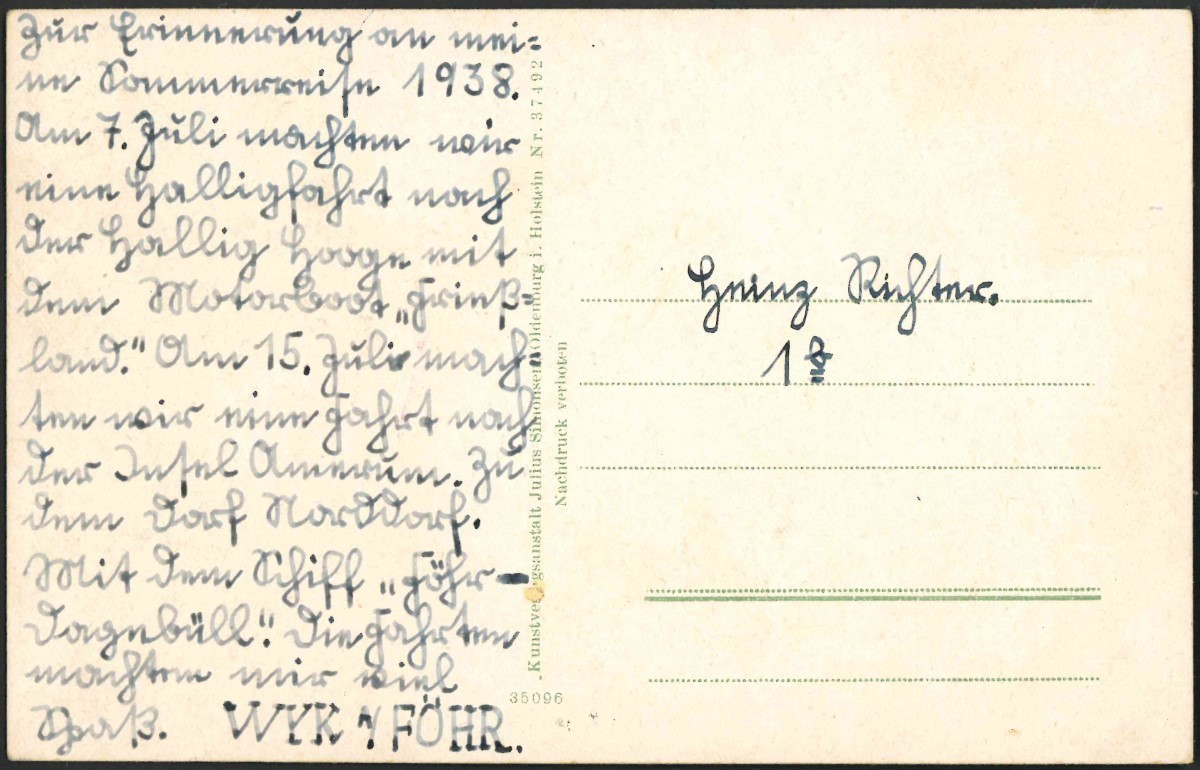 Zur Erinnerung an mei=
ne Sommerreise 1938.
Am 7. Juli machten wir
eine Halligfahrt nach
der Hallig Hooge mit
dem Motorboot „Frieß=
land." Am 15. Juli mach=
ten wir eine Fahrt nach
der Insel Amerum. Zu
dem Dorf Norddorf.
Mit dem Schiff „Föhr-
Dagebüll". Die Fahrten
machten mir viel
Spaß. WYK a/FÖHR.
Julius Simonsen Oldenburg i. Holstein Nr. 37492
Nachdruck verboten
35096
Heinz Richter.
1